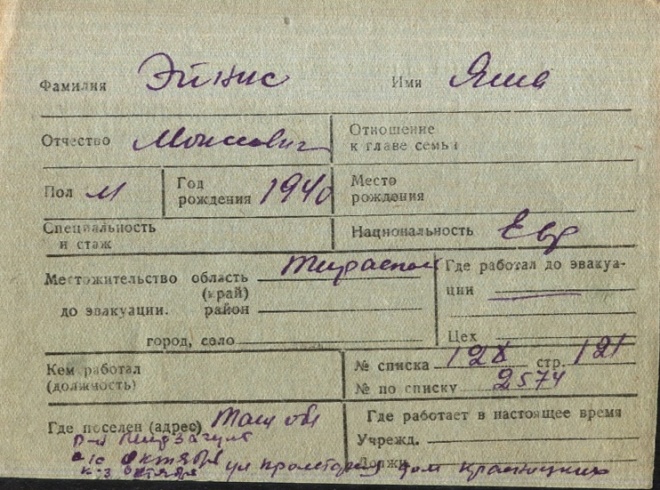 Фамилия Эйнис Имя Яша
Отчество Моисеевич Отношение к главе семьи
Пол М Год рождения 1940 Место рождения
Специальность и стаж Национальность Евр
Местожительство область Тирасполь Где работал до эвакуа-
(край) ции
до эвакуации. район
город, село Цех
Кем работал № списка 128 стр. 121
(должность) № по списку 2574
Где поселен (адрес) Таш обл Где работает в настоящее время
р-н Учрежд.
с/с Октября Должн.
к-з Октября ул пролетарск дом